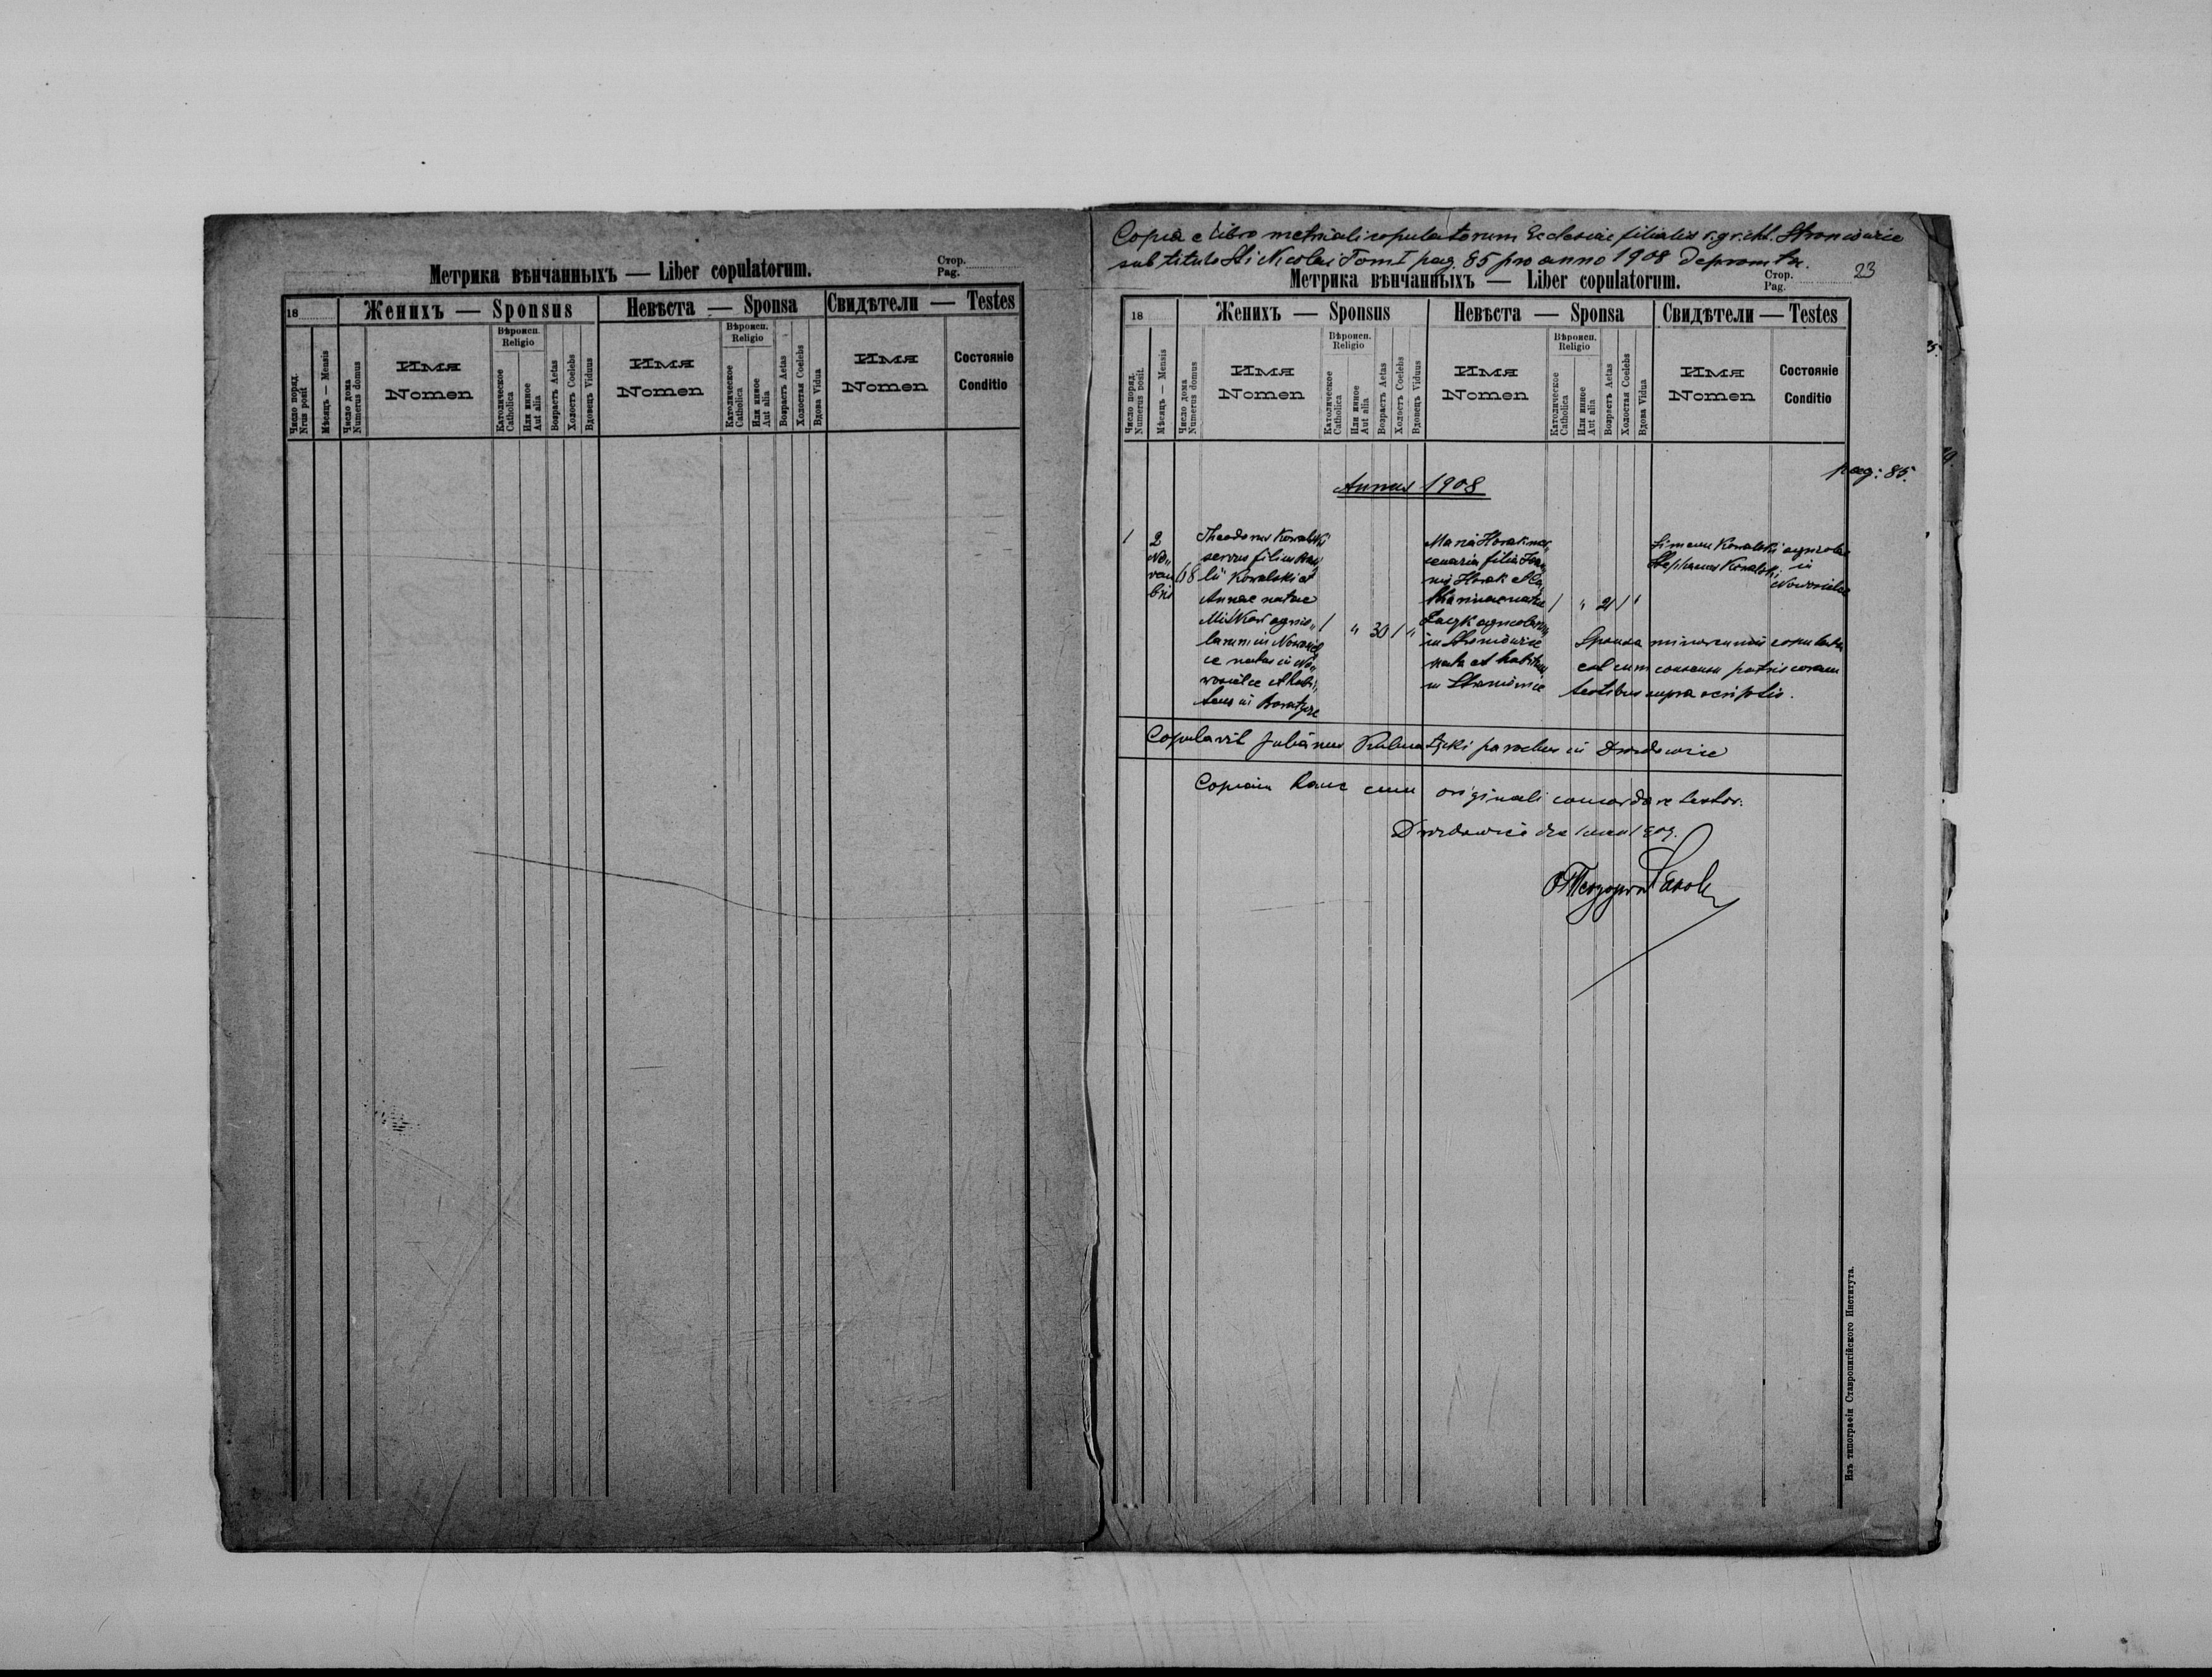 Метрика вѣнчанныхъ — Liber copulatorum.
Стор.
Pag.
18
Женихъ — Sponsus
Невѣста — Sponsa
Свидѣтели — Testes
Число поряд.
Nrus posit
Мѣсяцъ — Mensis
Число дома
Numerus domus
Имя
Nomen
Вѣроисп.
Religio
Католическое
Catholica
Или иное
Aut alia
Возрастъ Aetas
Холостъ Coelebs
Вдовецъ Viduus
Имя
Nomen
Вѣроисп.
Religio
Католическое
Catholica
Или иное
Aut alia
Возрастъ Aetas
Холостая Coelebs
Вдова Vidua
Имя
Nomen
Состояніе
Conditio
Copia e libro metricali copulatorum Ecclesiae filialis r. gr. cat. Stroniowice
sub titulo Sti Nicolai Tom I pag. 85 pro anno 1908 deprompta.
23
Метрика вѣнчанныхъ — Liber copulatorum.
Стор.
Pag.
18
Женихъ — Sponsus
Невѣста — Sponsa
Свидѣтели — Testes
Число поряд.
Numerus posit.
Мѣсяцъ — Mensis
Число дома
Numerus domus
Имя
Nomen
Вѣроисп.
Religio
Католическое
Catholica
Или иное
Aut alia
Возрастъ Aetas
Холостъ Coelebs
Вдовецъ Viduus
Имя
Nomen
Вѣроисп.
Religio
Католическое
Catholica
Или иное
Aut alia
Возрастъ Aetas
Холостая Coelebs
Вдова Vidua
Имя
Nomen
Состояніе
Conditio
pag: 85.
Annus 1908
1
2
No„
vem
bris
68
Theodorus Kowalski
servus filius Bas„
lii Kowalski et
Annae natae
Mićkow agrico„
larum in Nowosiel„
ce natus in No„
wosielce et habi„
tans in Boratycze
1 „ 30 1 „
Maria Horak mer„
cenaria filia Joan„
nis Horak et Ca„
tharinae natae
Zacyk agricolarum
in Stroniowice
nata et habitans
in Stroniowice
1 „ 21 1 „
Simeon Kowalski agricola
Stephanus Kowalski in
Nowosielce
Sponsa minorennis copulata
est cum consensu patris coram
testibus supra scriptis.
Copulavit Julianus parochus in Drozdowice
Copiam hanc cum originali concordare testor.
Drozdowice die 1909.